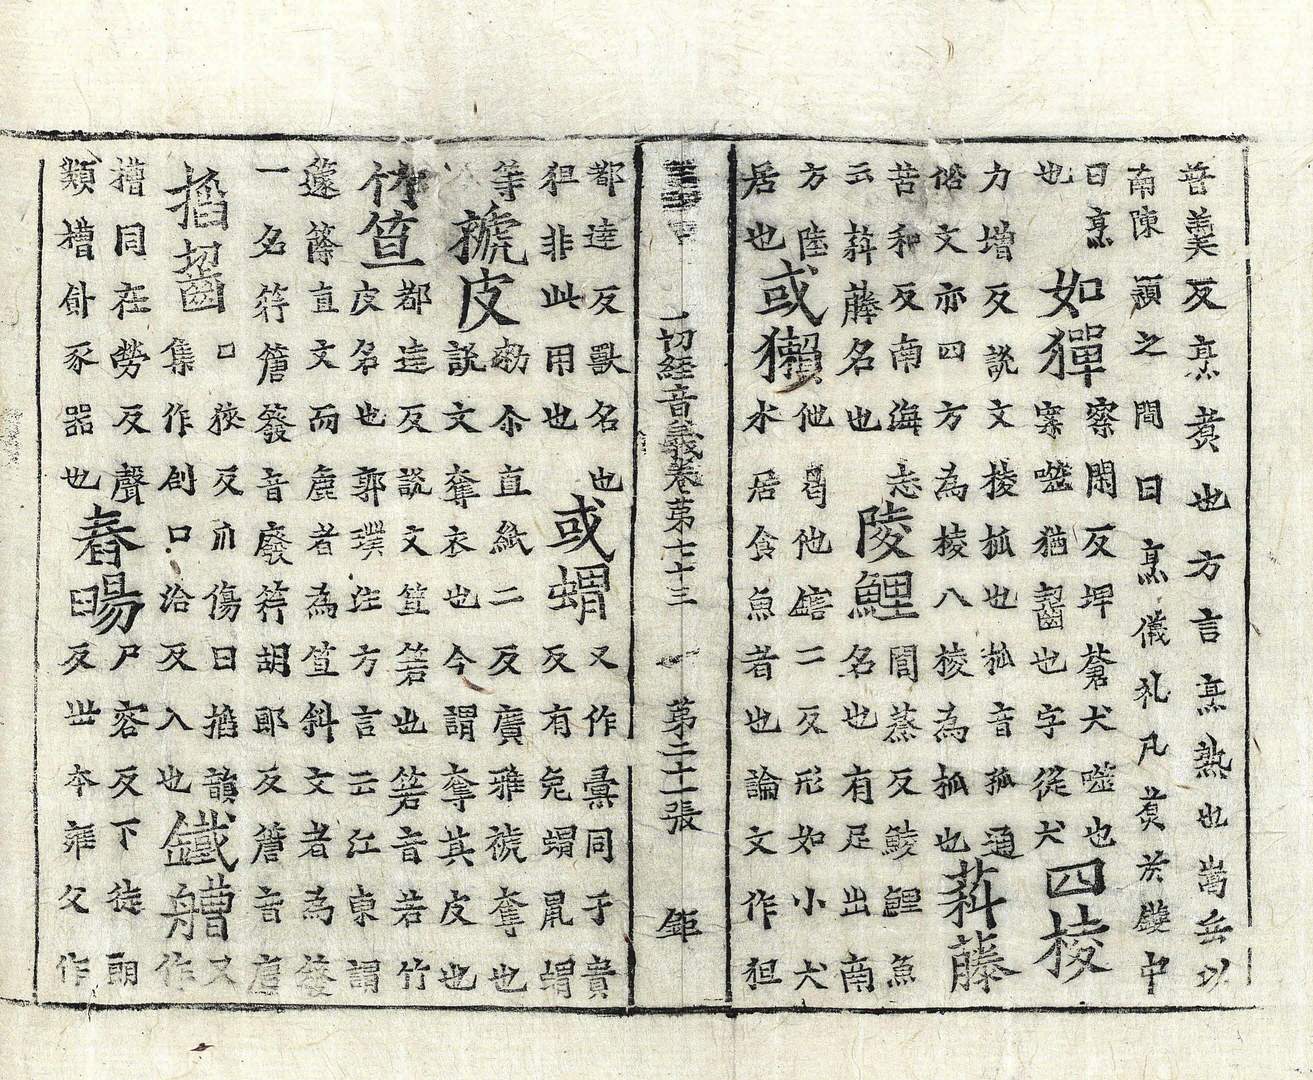 普羹反烹煑也方言烹熟也嵩岳以
南陳䪴之間曰烹儀礼凡煑於鑊中
曰烹
也
如獋
察閑反埤蒼犬噬也
寨噬猶齧也字從犬
四棱
力增反說文棱柧也柧音孤通
俗文亦四方為棱八棱為柧也
萪藤
苦和反南海志
云萪藤名也
陵鯉
閭蒸反鯪鯉魚
名也有足出南
方陸
居也
或獺
他曷他鎋二反形如小犬
水居食魚者也論文作狚
一切經音義卷第七十三 一 第二十一張 鉅
都達反獸名也
狚非此用也
或蝟
又作彙同于貴
反有兔蝟鼠蝟
等
褫皮
勑尒直紙二反廣雅褫奪也
說文奪衣也今謂奪其皮也
竹笪
都達反說文笪箬也箬音若竹
皮名也郭璞注方言云江東謂
籧篨直文而麁者為笪斜文者為䉬
一名符簹䉬音廢符胡郎反簹音唐
搯齧
口狹反爪傷曰搯韻
集作剳口洽反入也
鐵艚
又
作
槽同在勞反聲
類槽飤豕器也
舂暘
尸容反下徒朗
反此本雍父作